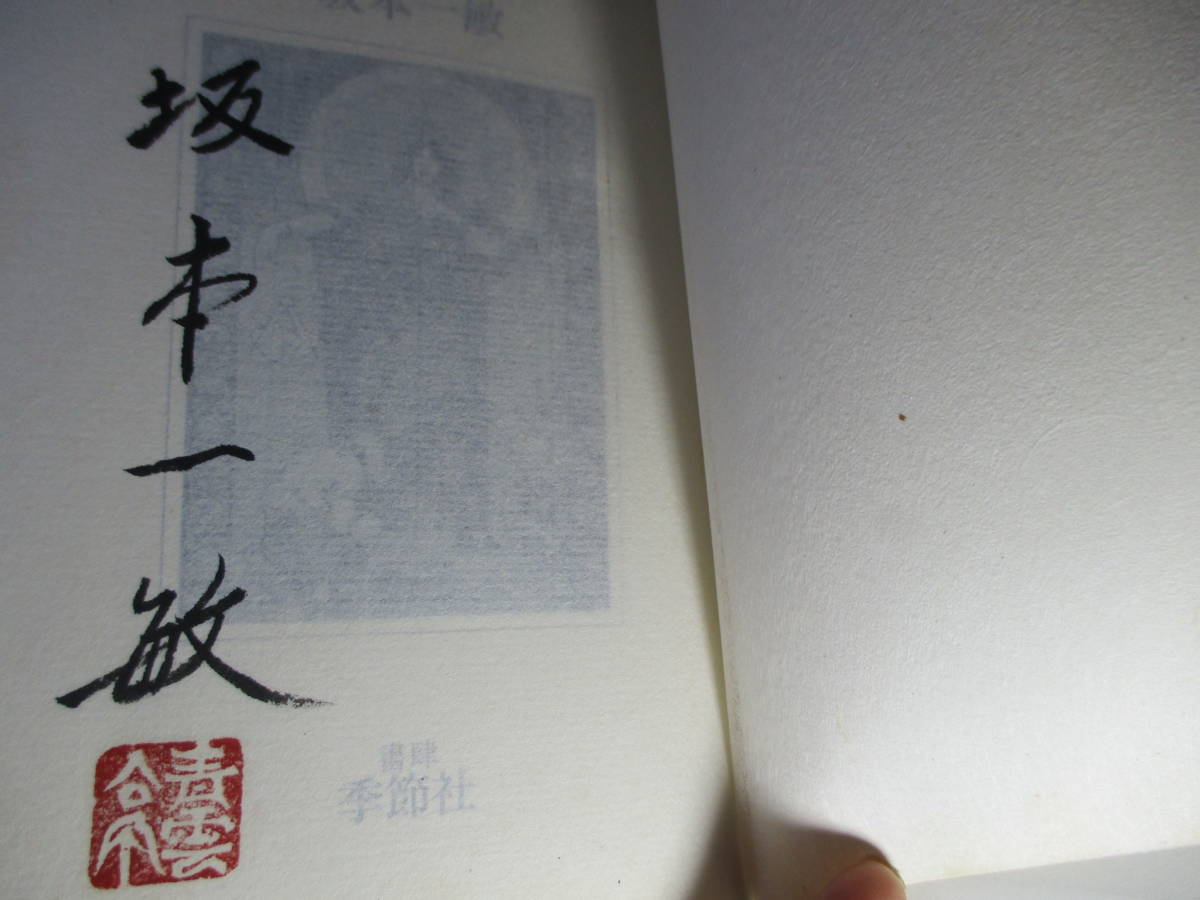 坂本一敏
坂本一敏
書肆
季節社
青雲